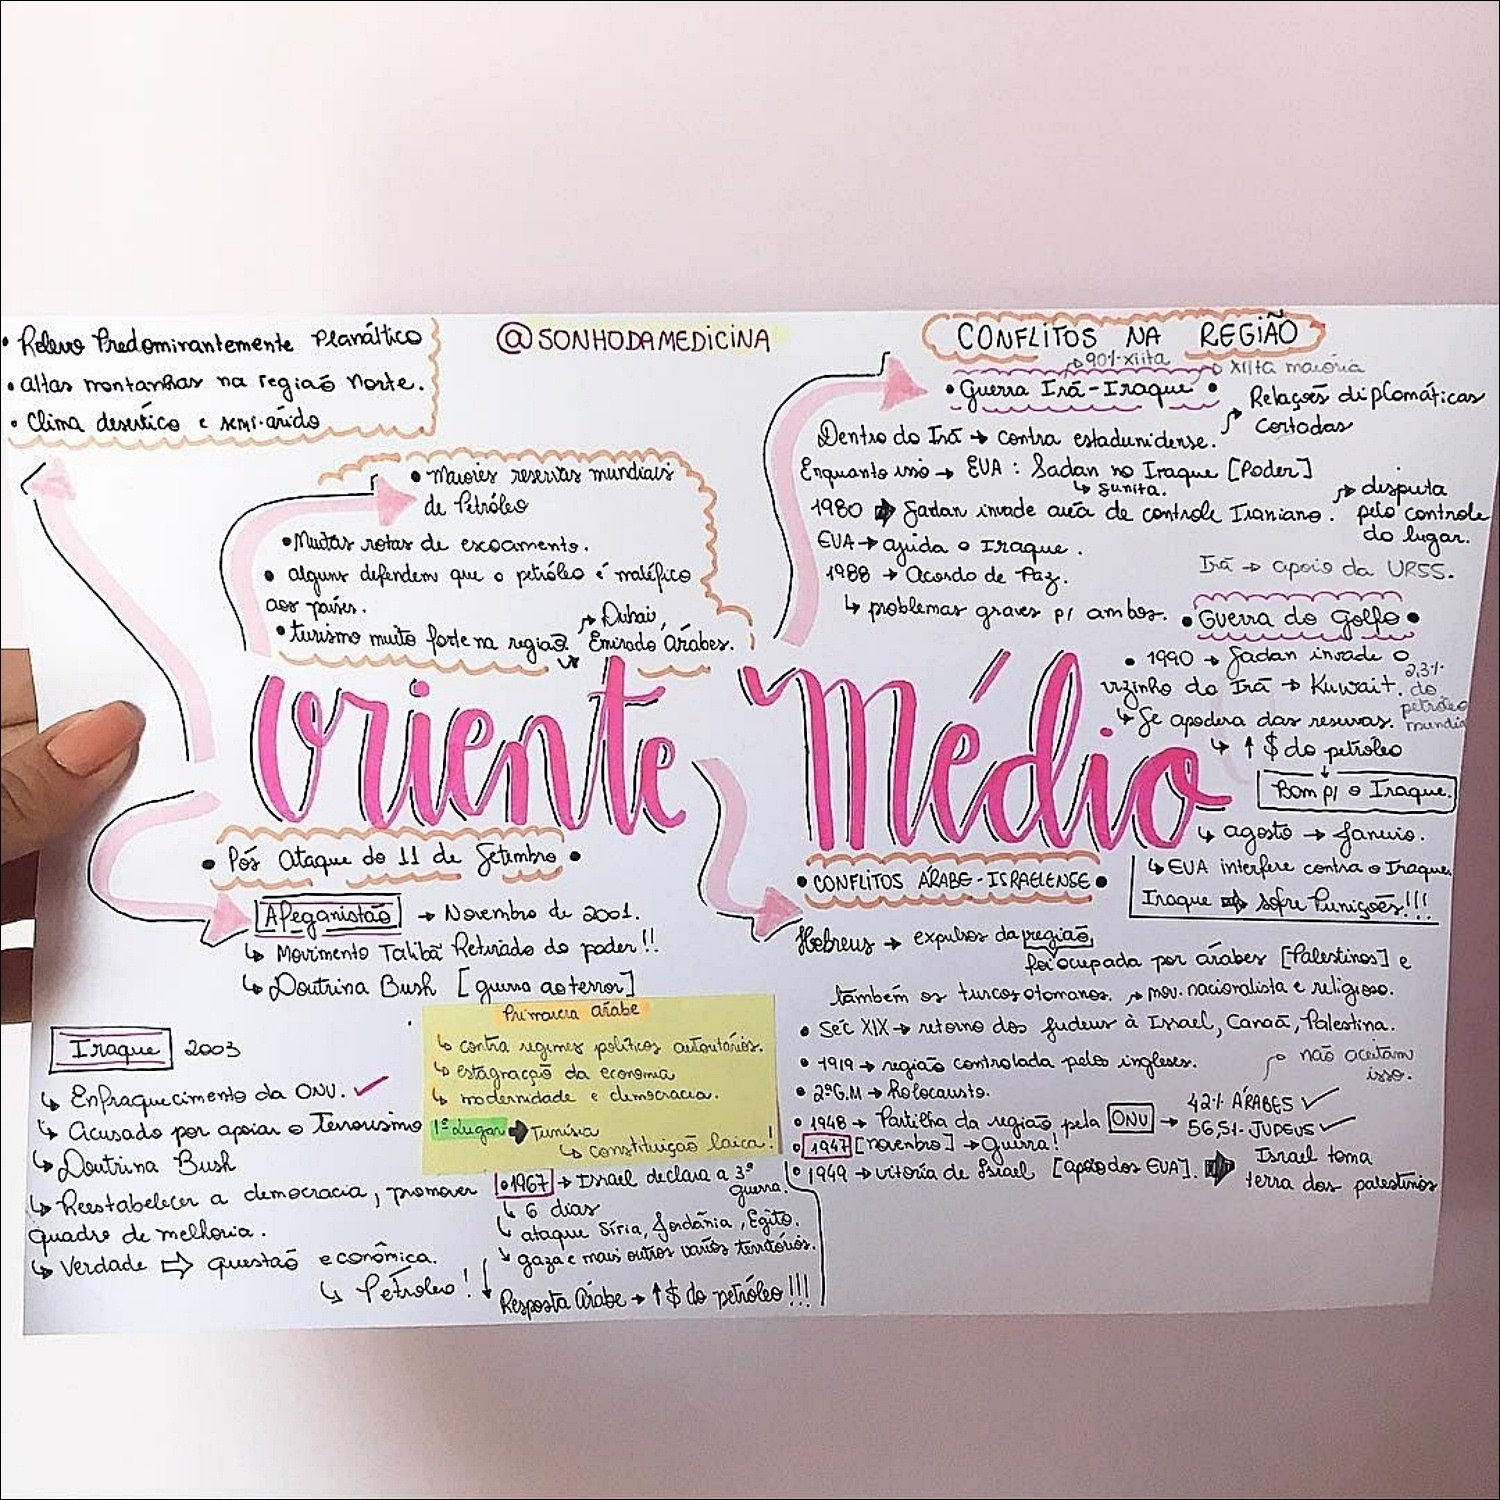 • Relevo Predominantemente Planáltico
• altas montanhas na região Norte.
• Clima desértico e semi-árido
@SONHODAMEDICINA
• Maiores reservas mundiais
de Petróleo
• Muitas rotas de escoamento.
• alguns defendem que o petróleo é maléfico
aos países.
• turismo muito forte na região. → Dubai,
Emirado Árabes.
Oriente Médio
CONFLITOS NA REGIÃO
→ 90% xiita
→ XIITA maioria
• Guerra Irã-Iraque •
Relações diplomáticas
Cortadas
Dentro do Irã → contra estadunidense.
Enquanto isso → EUA : Sadan no Iraque [Poder]
↳ sunita.
1980 → Sadan invade área de controle Iraniano.
→ disputa
pelo controle
do lugar.
EUA → ajuda o Iraque.
Irã → apoio da URSS.
1988 → Acordo de Paz.
↳ problemas graves p/ ambos.
• Guerra do Golfo •
• 1990 → Sadan invade o
vizinho do Irã → Kuwait.
2,3%
do
petróleo
mundial
↳ Se apodera das reservas.
↳ ↑ $ do petróleo
Bom p/ o Iraque.
↳ agosto → Janeiro.
↳ EUA interfere contra o Iraque
Iraque ⇒ Sofre Punições!!!
• Pós Ataque do 11 de Setembro •
Afeganistão → Novembro de 2001.
↳ Movimento Talibã Retirado do poder!!
↳ Doutrina Bush [guerra ao terror]
Iraque 2003
↳ Enfraquecimento da ONU. ✓
↳ Acusado por apoiar o Terrorismo
↳ Doutrina Bush
↳ Reestabelecer a democracia, promover
quadro de melhoria.
↳ Verdade ⇨ questão econômica.
↳ Petróleo!
Primavera árabe
↳ contra regimes políticos autoritários.
↳ estagnação da economia
↳ modernidade e democracia.
1º Lugar → Tunísia
↳ constituição laica!
• CONFLITOS ÁRABE-ISRAELENSE •
Hebreus → expulsos da região
foi ocupada por árabes [Palestinos] e
também os turcos otomanos. → mov. nacionalista e religioso.
• Séc XIX → retorno dos Judeus à Israel, Canaã, Palestina.
• 1919 → região controlada pelos ingleses.
→ não aceitam
isso.
• 2ª G.M → Holocausto.
• 1948 → Partilha da região pela ONU →
42% ÁRABES ✓
56,5% JUDEUS ✓
• 1947 [novembro] → Guerra!
• 1949 → vitória de Israel [apoio dos EUA]. ⇒ Israel toma
terra dos palestinos
• 1967 → Israel declara a 3ª
guerra.
↳ 6 dias
↳ ataque Síria, Jordânia, Egito.
↳ gaza e mais outros vários territórios.
Resposta Árabe → ↑ $ do petróleo!!!